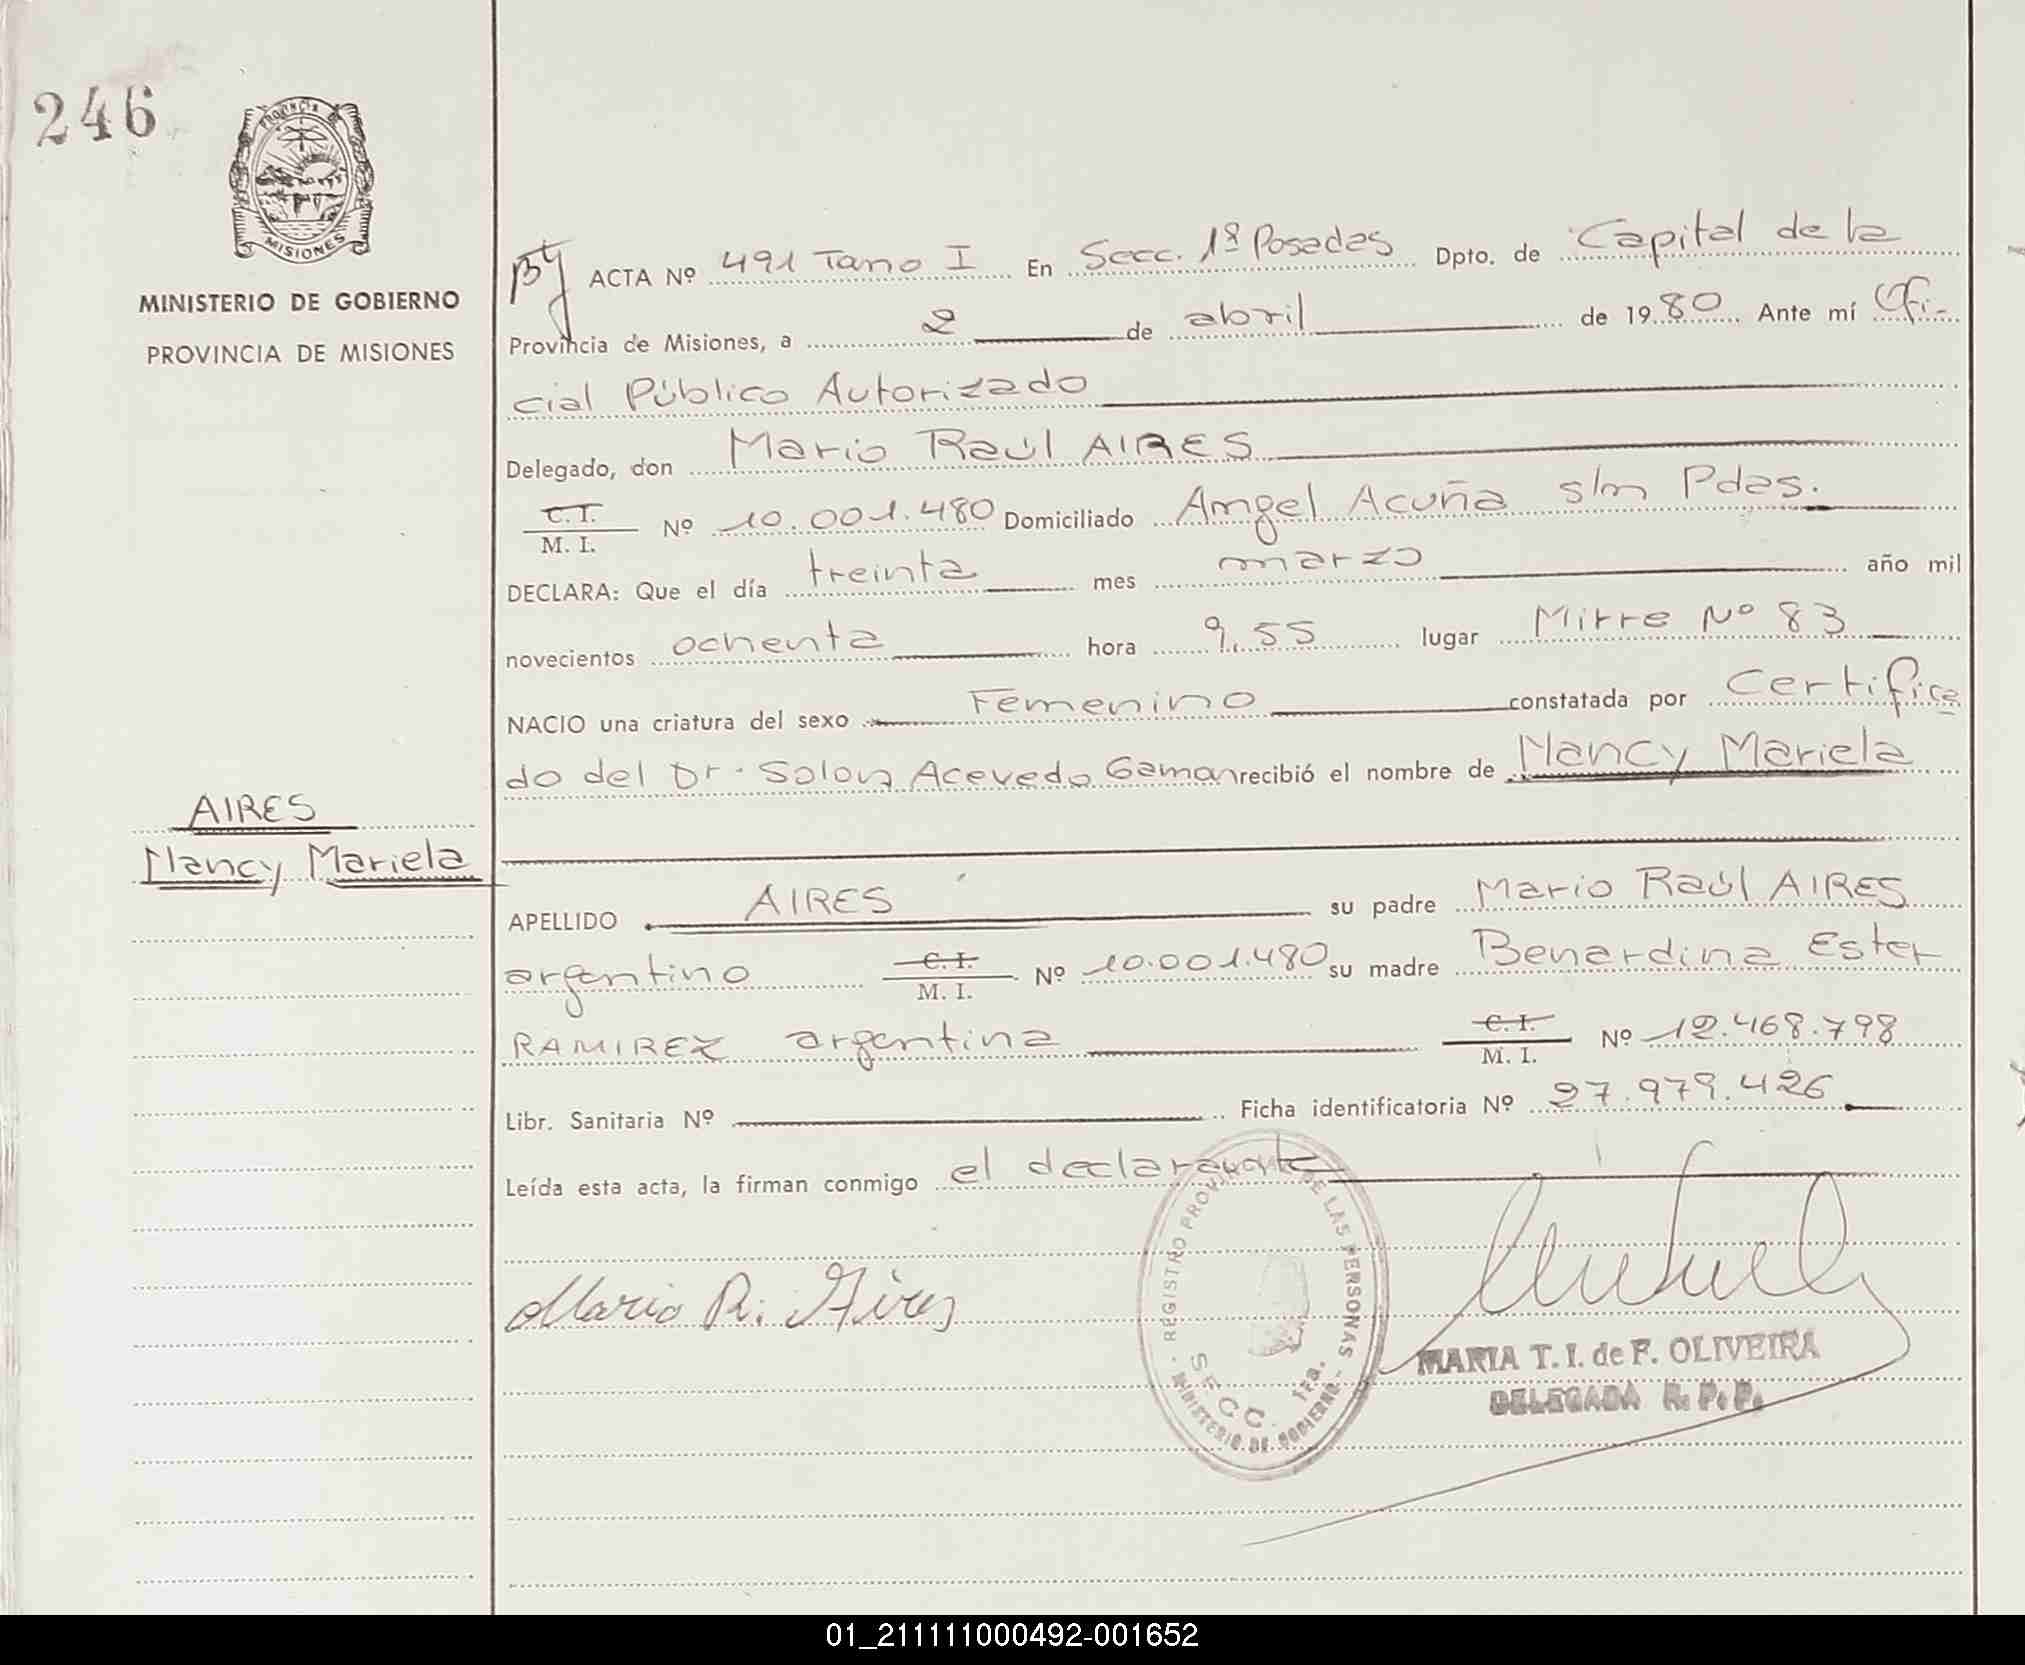 246
PROVINCIA DE
MISIONES
MINISTERIO DE GOBIERNO
PROVINCIA DE MISIONES
AIRES
Nancy Mariela
ACTA Nº 491 Tomo I En Secc. 1ª Posadas Dpto. de Capital de la
Provincia de Misiones, a 2 de abril de 1980 Ante mí Ofi-
cial Público Autorizado
Delegado, don Mario Raúl AIRES
C.I.
M. I. Nº 10.001.480 Domiciliado Angel Acuña s/n Pdas.
DECLARA: Que el día treinta mes marzo año mil
novecientos ochenta hora 9,55 lugar Mitre Nº 83
NACIO una criatura del sexo Femenino constatada por Certifica
do del Dr. Solon Acevedo Gaman recibió el nombre de Nancy Mariela
APELLIDO AIRES su padre Mario Raúl AIRES
argentino C.I.
M. I. Nº 10.001.480 su madre Benardina Ester
RAMIREZ argentina C.I.
M. I. Nº 12.468.798
Libr. Sanitaria Nº Ficha identificatoria Nº 27.979.426
Leída esta acta, la firman conmigo el declarante
Mario R. Aires
REGISTRO PROVINCIAL DE LAS PERSONAS
SECC. 1ra.
MINISTERIO DE GOBIERNO
MARIA T. I. de F. OLIVEIRA
DELEGADA R. P. P.
01_211111000492-001652